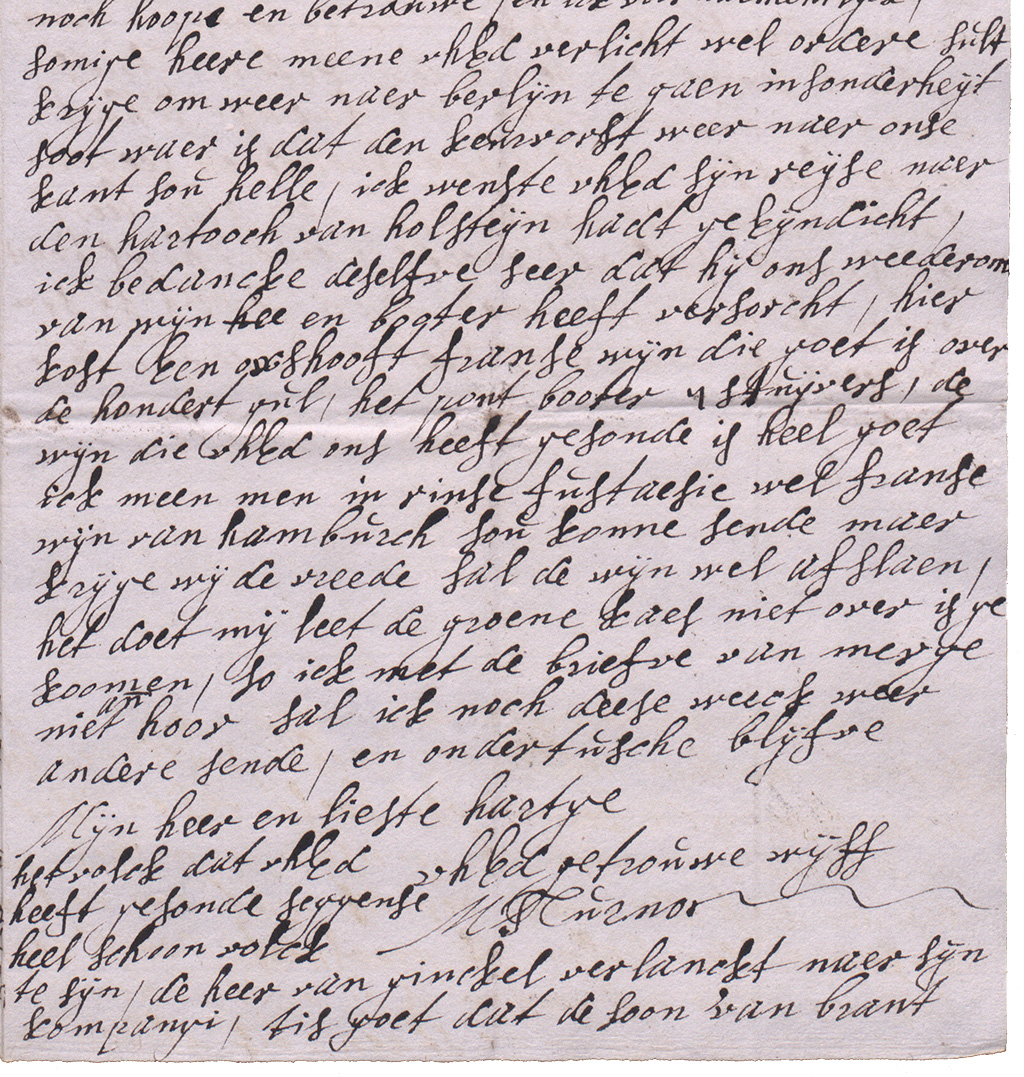 noch hoope en betrouwe
somige heere meene uhEd verlicht wel ordere sult
krijge om weer naer berlijn te gaen insonderheijt
soot waer is dat den keurvorst weer naer onse
kant sou helle, ick wenste uhEd sijn reijse naer
den hartooch van holsteijn hadt gekijndicht,
ick bedancke deselfve seer dat hij ons weederom
van wijn hee en booter heeft versorcht, hier
kost een oxshooft franse wijn die goet is over
de hondert gul, het pont booter 9 stuijvers, de
wijn die uhEd ons heeft gesonde is heel goet
ick meen men in rinse fustaesie wel franse
wijn van hamburch sou konne sende maer
krijge wij de vreede sal de wijn wel afslaen,
het doet mij leet de groene kaes niet over is ge
koomen, so ick met de briefve van merge
niet an hoor sal ick noch deese weeck weer
andere sende, en ondertusche blijfve
Mijn heer en liefste hartge
uhEd getrouwe wijff
M Turnor
het volck dat uhEd
heeft gesonde seggense
heel schoon volck
te sijn, de heer van ginckel verlanckt naer sijn
kompangi, tis goet dat de soon van brant